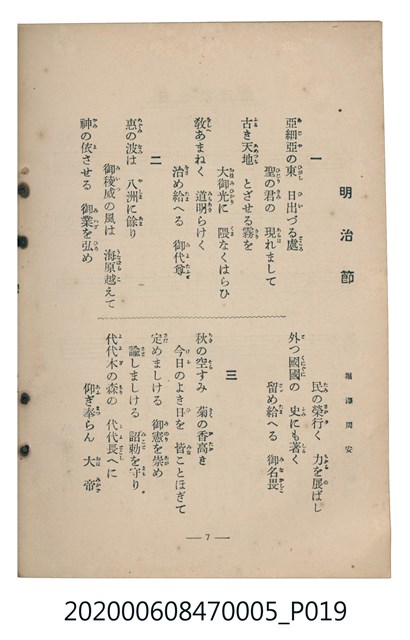 明治節
堀澤周安
一
亞細亞の東 日出づる處
聖の君の 現れまして
古き天地 とざせる霧を
大御光に 隈なくはらひ
敎あまねく 道明らけく
治め給へる 御代尊
二
惠の波は 八洲に餘り
御稜威の風は 海原越えて
神の依させる 御業を弘め
民の榮行く 力を展ばし
外つ國國の 史にも著く
留め給へる 御名畏
三
秋の空すみ 菊の香高き
今日のよき日を 皆ことほぎて
定めましける 御憲を崇め
諭しましける 詔勅を守り
代代木の森の 代代長へに
仰ぎ奉らん 大帝
— 7 —
202000608470005_P019